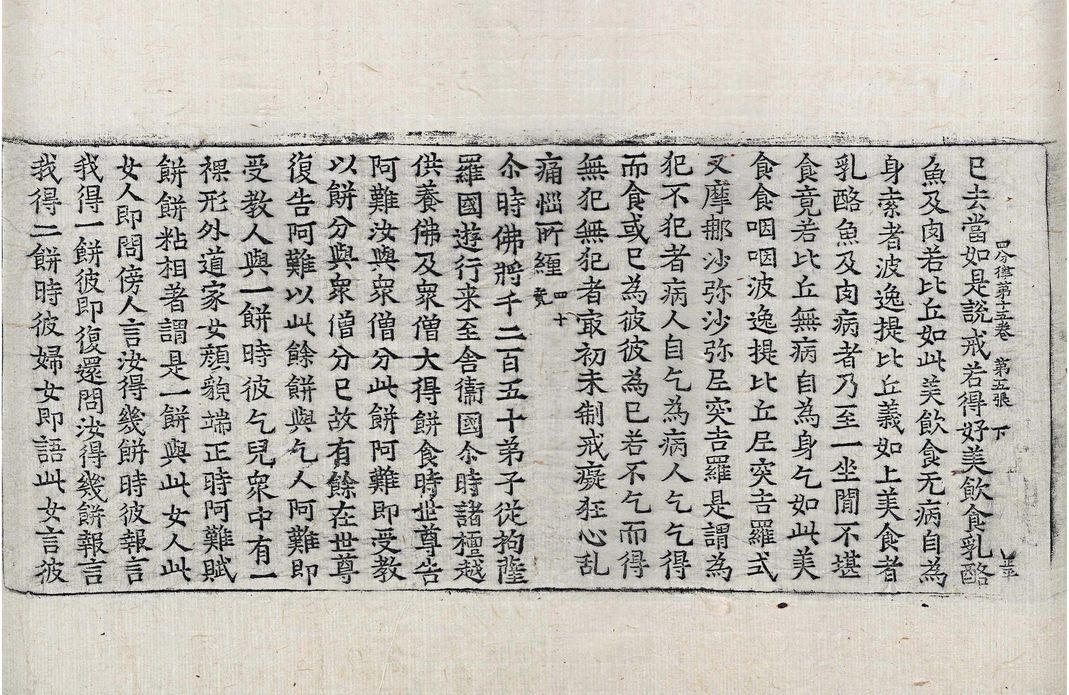 四分律第十五卷 第五張 下
已去當如是說戒若得好美飲食乳酪
魚及肉若比丘如此美飲食无病自為
身索者波逸提比丘義如上美食者
乳酪魚及肉病者乃至一坐間不堪
食竟若比丘無病自為身乞如此美
食食咽咽波逸提比丘尼突吉羅式
叉摩那沙弥沙弥尼突吉羅是謂為
犯不犯者病人自乞為病人乞乞得
而食或已為彼彼為已若不乞而得
無犯無犯者㝡初未制戒癡狂心乱
痛惱所纏 四十竟
尒時佛將千二百五十弟子從拘薩
羅國遊行来至舍衞國尒時諸檀越
供養佛及衆僧大得餅食時世尊告
阿難汝與衆僧分此餅阿難即受教
以餅分與衆僧分已故有餘在世尊
復告阿難以此餘餅與乞人阿難即
受教人與一餅時彼乞兒衆中有一
裸形外道家女顏貌端正時阿難賦
餅餅粘相著謂是一餅與此女人此
女人即問傍人言汝得幾餅時彼報言
我得一餅彼即復還問汝得幾餅報言
我得二餅時彼婦女即語此女言彼